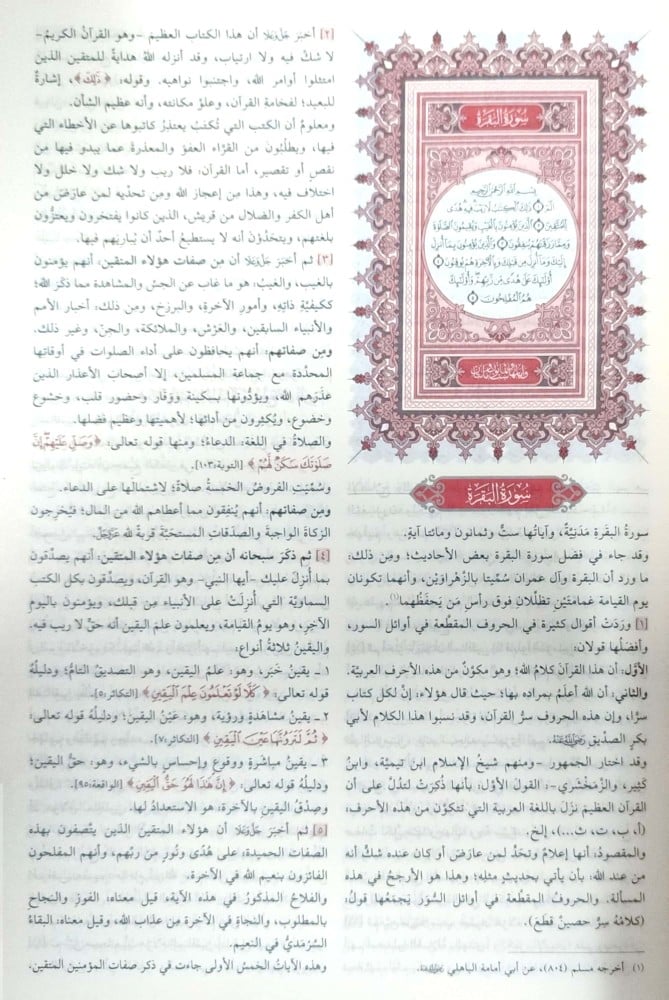 سُورَةُ البَقَرَةِ
بِسْمِ اللَّهِ الرَّحْمَٰنِ الرَّحِيمِ
الٓمٓ ۝١ ذَٰلِكَ الْكِتَابُ لَا رَيْبَ فِيهِ هُدًى
لِّلْمُتَّقِينَ ۝٢ الَّذِينَ يُؤْمِنُونَ بِالْغَيْبِ وَيُقِيمُونَ الصَّلَاةَ
وَمِمَّا رَزَقْنَاهُمْ يُنفِقُونَ ۝٣ وَالَّذِينَ يُؤْمِنُونَ بِمَا أُنزِلَ
إِلَيْكَ وَمَا أُنزِلَ مِن قَبْلِكَ وَبِالْآخِرَةِ هُمْ يُوقِنُونَ ۝٤
أُولَٰئِكَ عَلَىٰ هُدًى مِّن رَّبِّهِمْ وَأُولَٰئِكَ
هُمُ الْمُفْلِحُونَ ۝٥
سُورَةُ البَقَرَةِ
سورةُ البقَرَةِ مَدَنِيَّةٌ، وآياتُها ستٌّ وثمانون ومائتا آيَةٍ.
وقد جاء في فضل سورة البقرة بعض الأحاديث؛ ومِن ذلك:
ما ورد أن البقرة وآل عمران سُمِّيتا بالزَّهْراوَيْنِ، وأنهما تكونان
يوم القيامة غمامَتَيْنِ تظلِّلان فوق رأس مَن يَحفَظُهما(١).
[١] ورَدَتْ أقوال كثيرة في الحروف المقطَّعة في أوائل السور،
وأفضَلُها قولان:
الأوَّل: أن هذا القرآن كلامُ الله؛ وهو مكوَّن من هذه الأحرف العربيَّة.
والثاني: أن الله أعلَمُ بمراده بها؛ حيث قال هؤلاء: إنَّ لكل كتاب
سرًّا، وإن هذه الحروف سرُّ القرآن، وقد نسبوا هذا الكلام لأبي
بكرٍ الصدِّيق رَضِيَ اللَّهُ عَنْهُ.
وقد اختار الجمهور -ومنهم شيخُ الإسلام ابن تيميَّة، وابنُ
كَثِير، والزَّمَخْشَري-: القولَ الأوَّل؛ بأنها ذُكِرَتْ لتدُلَّ على أن
القرآن العظيم نزَلَ باللغة العربية التي تتكوَّن من هذه الأحرف:
(أ، ب، ت، ث...)، إلخ.
والمقصودُ: أنها إعلامٌ وتحَدٍّ لمن عارَضَ أو كان عنده شكٌّ أنه
من عند الله: بأن يأتي بحديثٍ مثلِهِ؛ وهذا هو الأرجحُ في هذه
المسألة. والحروف المقطَّعة في أوائل السُّوَر يَجمَعُها قولُ:
(كلامُهُ سِرٌّ حصينٌ قطَعَ).
(١) أخرجه مسلم (٨٠٤)، عن أبي أمامة الباهلي رَضِيَ اللَّهُ عَنْهُ.
[٢] أخبَرَ جَلَّ وَعَلَا أن هذا الكتاب العظيم -وهو القرآنُ الكريمُ-
لا شكَّ فيه ولا ارتياب، وقد أنزله اللهُ هدايةً للمتقين الذين
امتثلوا أوامر الله، واجتنبوا نواهيه. وقوله: ﴿ذَٰلِكَ﴾، إشارةٌ
للبعيد؛ لفخامة القرآن، وعلوِّ مكانته، وأنه عظيم الشأن.
ومعلومٌ أن الكتب التي تُكتَبُ يعتذرُ كاتبوها عن الأخطاء التي
فيها، ويطلُبُون من القرَّاء العفوَ والمعذرةَ عما يبدو فيها مِن
نقصٍ أو تقصير، أما القرآن: فلا ريب ولا شك ولا خلل ولا
اختلاف فيه، وهذا من إعجاز الله ومن تحدِّيه لمن عارَضَ من
أهل الكفر والضلال من قريش، الذين كانوا يفتخرون ويعتزُّون
بلغتهم، ويتحَدَّوْنَ أنه لا يستطيعُ أحدٌ أن يُباريَهم فيها.
[٣] ثم أخبَرَ جَلَّ وَعَلَا أن مِن صفات هؤلاء المتقين: أنهم يؤمنون
بالغيب، والغيبُ: هو ما غاب عن الحِسِّ والمشاهدة مما ذكَرَ الله؛
ككيفيَّةِ ذاتِهِ، وأمورِ الآخرةِ، والبرزخ، ومن ذلك: أخبار الأمم
والأنبياء السابقين، والعَرْش، والملائكة، والجِنّ، وغير ذلك.
ومِن صفاتهم: أنهم يحافظون على أداء الصلوات في أوقاتها
المحدَّدة مع جماعة المسلمين، إلا أصحابَ الأعذار الذين
عذَرَهم الله، ويؤدُّونها بسكينة ووَقَار وحضور قلب، وخشوع
وخضوع، ويُكثِرون من أدائها؛ لأهميتها وعظيم فضلها.
والصلاةُ في اللغة: الدعاءُ؛ ومنها قوله تعالى: ﴿وَصَلِّ عَلَيْهِمْ إِنَّ
صَلَوٰتَكَ سَكَنٌ لَّهُمْ﴾ [التوبة:١٠٣].
وسُمِّيَتِ الفروضُ الخمسةُ صلاةً؛ لاشتمالها على الدعاء.
ومِن صفاتهم: أنهم يُنفقون مما أعطاهم الله من المال؛ فيُخرِجون
الزكاةَ الواجبةَ والصدَقاتِ المستحَبَّةَ قربةً لله عَزَّ وَجَلَّ.
[٤] ثم ذكَرَ سبحانه أن مِن صفات هؤلاء المتقين: أنهم يصدِّقون
بما أُنزِلَ عليك -أيها النبي- وهو القرآن، ويصدِّقون بكل الكتب
السماويَّة التي أُنزِلَتْ على الأنبياء مِن قبلك، ويؤمنون باليومِ
الآخِرِ، وهو يومُ القيامة، ويعلمون عِلمَ اليقين أنه حقٌّ لا ريب فيه.
واليقينُ ثلاثةُ أنواع:
١ ـ يقينُ خَبَرٍ، وهو: علمُ اليقين، وهو: التصديق التامُّ؛ ودليلُهُ
قوله تعالى: ﴿كَلَّا لَوْ تَعْلَمُونَ عِلْمَ الْيَقِينِ﴾ [التكاثر:٥].
٢ ـ يقينُ مشاهدةٍ ورؤية، وهو: عَيْنُ اليقين؛ ودليلُهُ قوله تعالى:
﴿ثُمَّ لَتَرَوُنَّهَا عَيْنَ الْيَقِينِ﴾ [التكاثر:٧].
٣ ـ يقينُ مباشَرةٍ ووقوعٍ وإحساسٍ بالشيء، وهو: حقُّ اليقين؛
ودليلُهُ قوله تعالى: ﴿إِنَّ هَٰذَا لَهُوَ حَقُّ الْيَقِينِ﴾ [الواقعة:٩٥].
وصِدْقُ اليقينِ بالآخرة: هو الاستعدادُ لها.
[٥] ثم أخبَرَ جَلَّ وَعَلَا أن هؤلاء المتقين الذين يتَّصِفون بهذه
الصفات الحميدة: على هُدًى ونُورٍ مِن ربِّهم، وأنهم المفلحون
الفائزون بنعيم الله في الآخرة.
والفلاحُ المذكورُ في هذه الآية، قيل معناه: الفوزُ والنجاح
بالمطلوب، والنجاةُ في الآخرة مِن عذاب الله، وقيل معناه: البقاءُ
السَّرْمَديُّ في النعيم.
وهذه الآياتُ الخمسُ الأولى جاءت في ذكر صفات المؤمنين المتقين.